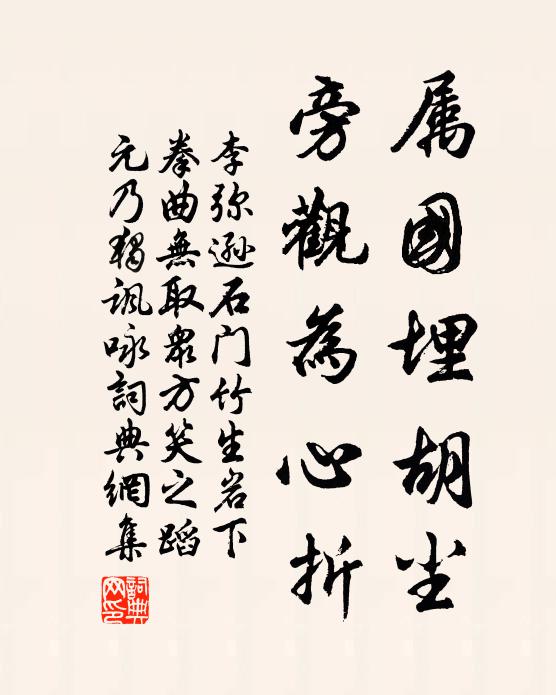 属國埋胡尘
旁觀為心折
李弥遜石门竹生岩下
拳曲無取衆方笑之蹈
元乃獨諷咏詞典網集
詞典
网印